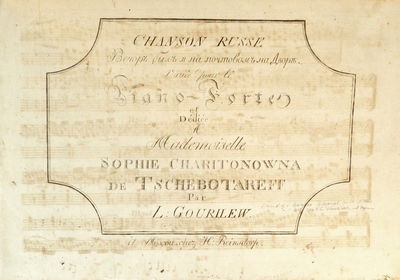 CHANSON RUSSE
Вечоръ былъ я на почтовомъ на Дворѣ.
pour le
Piano-Forte
et
Dediée
à
Mademoiselle
SOPHIE CHARITONOWNA
DE TSCHEBOTAREFF
Par
L. GOURILEW.
à Moscou chez H. Reinsdorp.